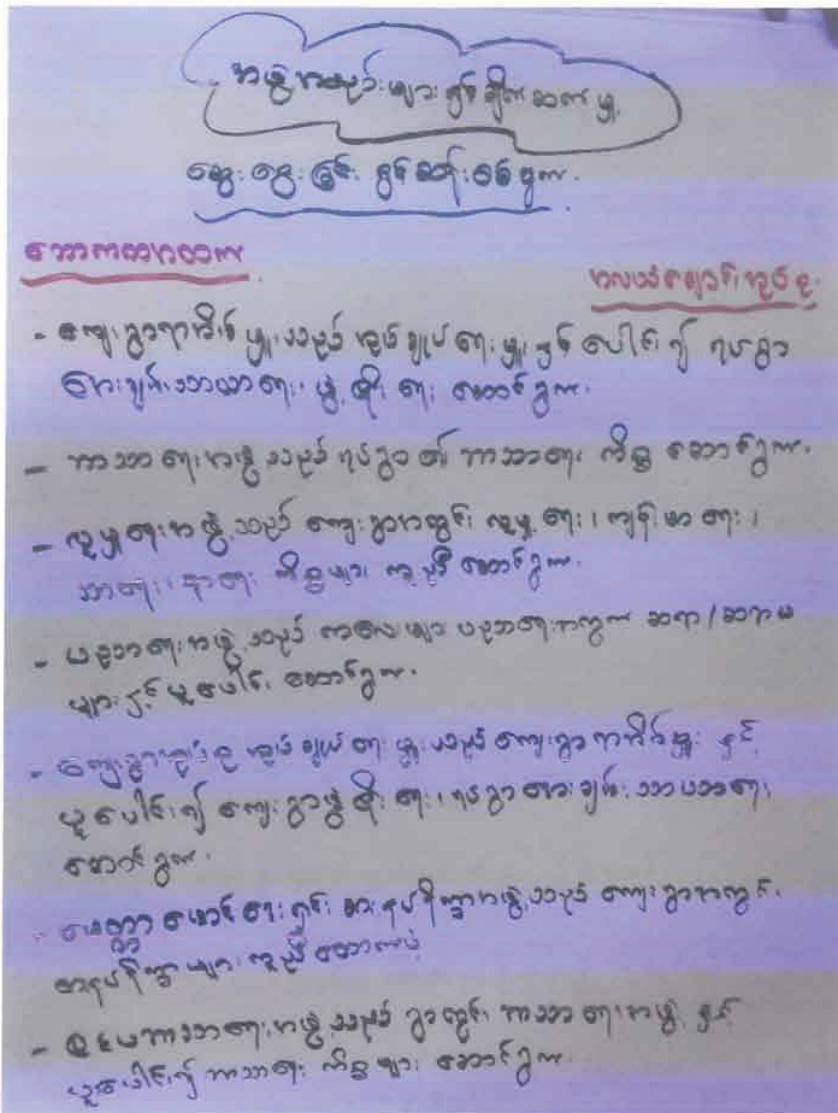 အဖွဲ့အစည်းများနှင့်ချိတ်ဆက်မှု
ဆွေးနွေးခြင်း စွမ်းဆောင်ချက်.
အောကထာထက
အလယ်ချောင်းအုပ်စု.
- ကျေးရွာရာအိမ်မှူးသည် အုပ်ချုပ်ရေးမှူးနှင့်ပေါင်း၍ ရပ်ရွာ
အေးချမ်းသာယာရေး၊ ဖွံ့ဖြိုးရေး ဆောင်ရွက်.
- ဘာသာရေးအဖွဲ့သည် ရပ်ရွာ၏ ဘာသာရေး ကိစ္စ ဆောင်ရွက်.
- လူမှုရေးအဖွဲ့သည် ကျေးရွာအတွင်း လူမှုရေး၊ ကျန်းမာရေး၊
သာရေး၊ နာရေး ကိစ္စများ ကူညီ ဆောင်ရွက်.
- ပညာရေးအဖွဲ့သည် ကလေးများ ပညာရေးအတွက် ဆရာ/ဆရာမ
များနှင့် ပူးပေါင်း ဆောင်ရွက်.
- ကျေးရွာအုပ်စု အုပ်ချုပ်ရေးမှူးသည် ကျေးရွာရာအိမ်မှူး နှင့်
ပူးပေါင်း၍ ကျေးရွာဖွံ့ဖြိုးရေး၊ ရပ်ရွာအေးချမ်းသာယာရေး
ဆောင်ရွက်.
- မေတ္တာ စောင်ရေးရှင်း စားနပ်ရိက္ခာအဖွဲ့သည် ကျေးရွာအတွင်း
စားနပ်ရိက္ခာများ ကူညီထောက်ပံ့
- ဓမ္မဘာသာရေးအဖွဲ့သည် ရွာတွင်း ဘာသာရေးအဖွဲ့ နှင့်
ပူးပေါင်း၍ ဘာသာရေး ကိစ္စများ ဆောင်ရွက်.